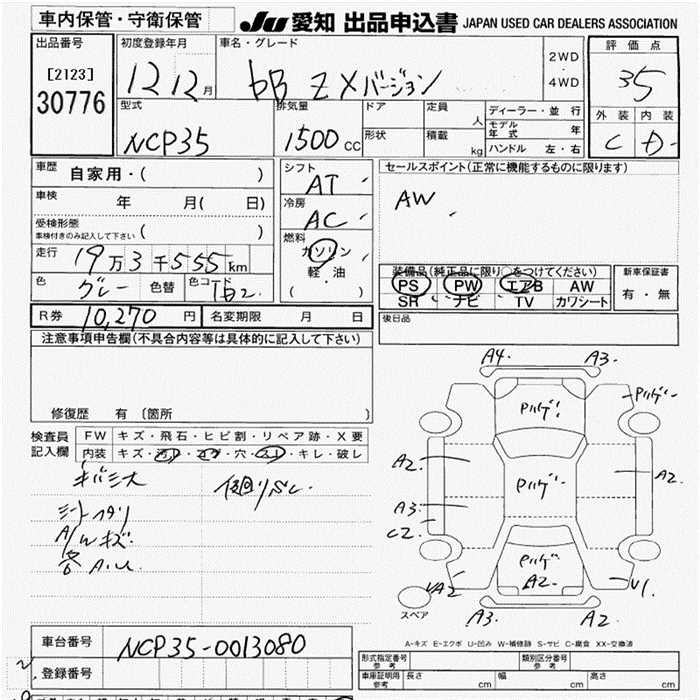 車内保管・守衛保管
JU 愛知 出品申込書 JAPAN USED CAR DEALERS ASSOCIATION
出品番号
[2123]
30776
初度登録年月
12 12月
車名・グレード
bB Z Xバージョン
2WD
・
4WD
評価点
35
外装 内装
C D-
型式
NCP35
排気量
1500 CC
ドア
形状
定員
人
積載
kg
ディーラー・並 行
モデル年式 年
ハンドル 左・右
車歴
自家用・( )
車検
年 月( 日)
受検形態
車検付きのみ記入して下さい ( )
走行
19万3千555km
色 グレー 色替 色コード 1B2
シフト
AT
冷房
AC
燃料
ガソリン
軽・油
( )
セールスポイント(正常に機能するものに限ります)
AW
装備品(純正品に限り○をつけてください)
PS PW エアB AW
SR ナビ TV カワシート
新車保証書
有・無
R券 10,270 円 名変期限 月 日
後日品
注意事項申告欄(不具合内容等は具体的に記入して下さい)
修復歴 有 〔箇所 〕
検査員
記入欄
FW キズ・飛石・ヒビ割・リペア跡・X要
内装 キズ・汚れ・コゲ・穴・スレ・キレ・破レ
キバミ大
シートヘタリ
A/Wキズ
各A.U
A4. A3.
A2. A2
A3.
C2.
A2
A3. A2
U1.
スペア
A-キズ E-エクボ U-凹み W-補修跡 S-サビ C-腐食 XX-交換済
車台番号 NCP35-0013080
登録番号
形式指定番号
参考
類別区分番号
参考
車庫証明用
参考
長さ cm 幅 cm 高さ cm